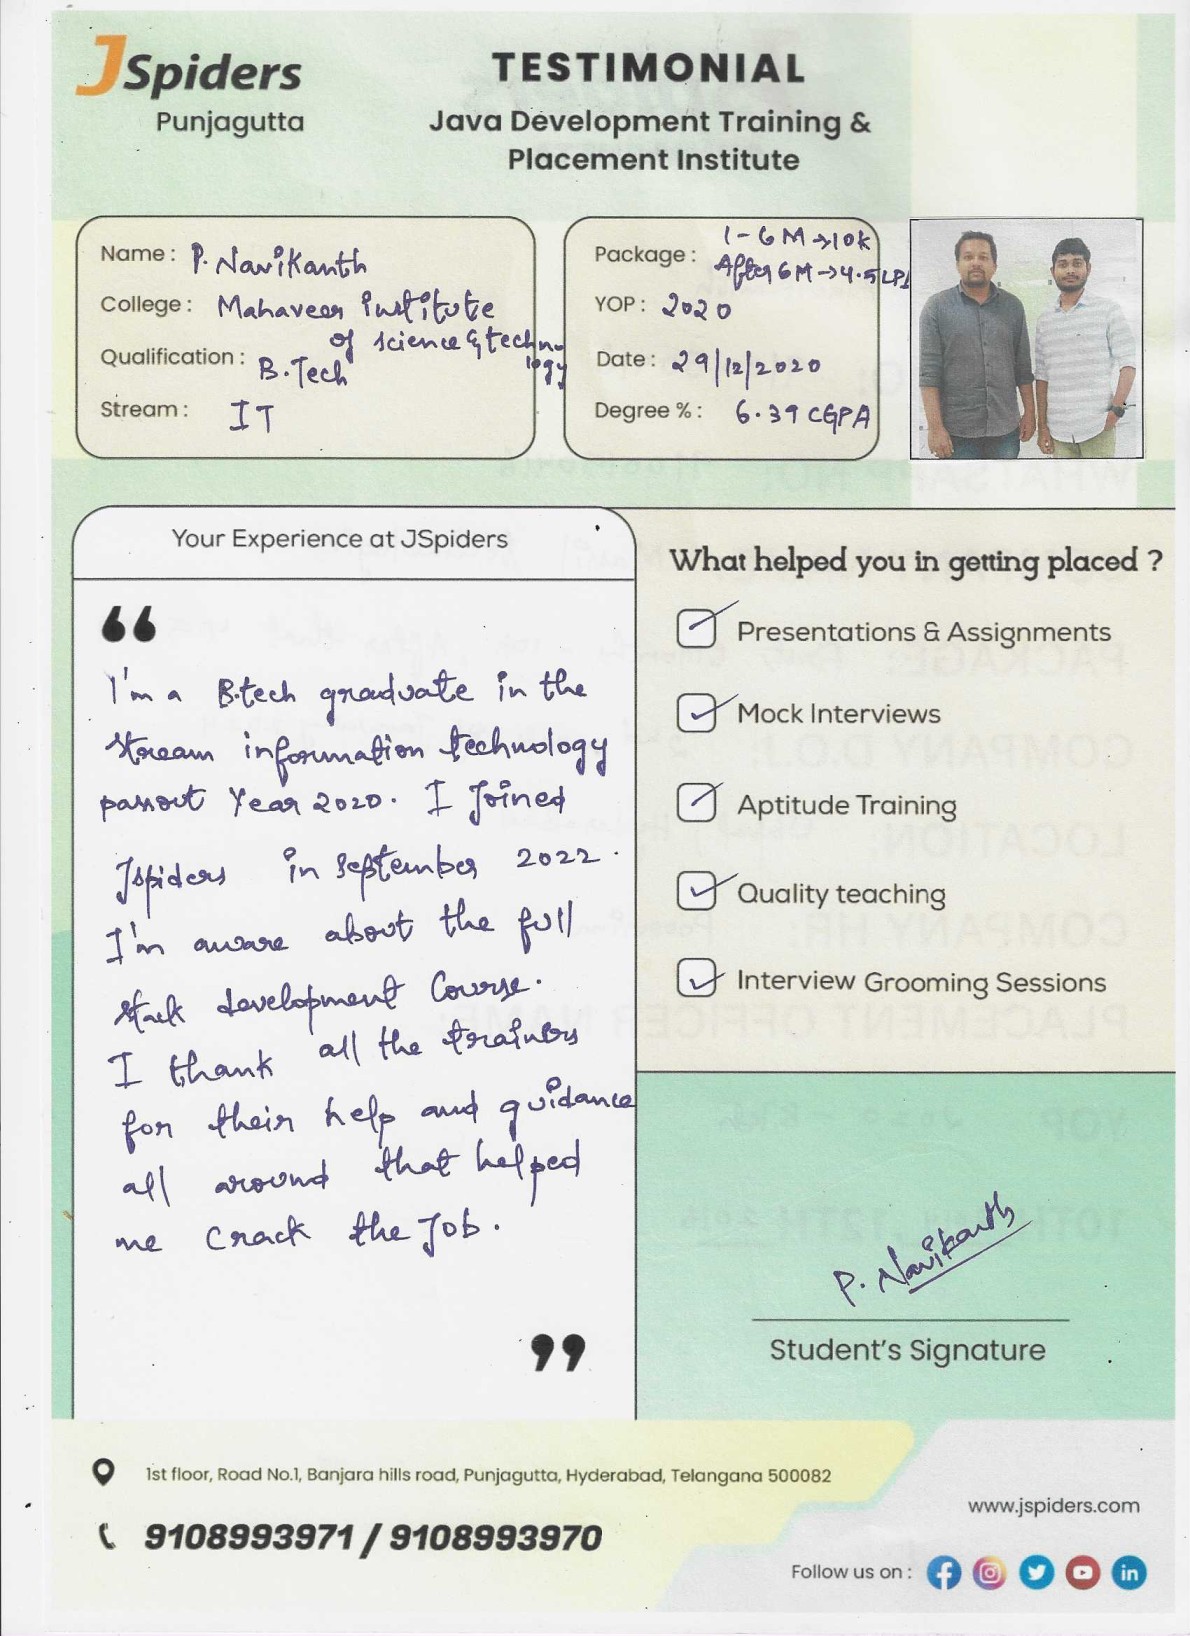 JSpiders
Punjagutta
TESTIMONIAL
Java Development Training &
Placement Institute
Name : P. Navikanth
College : Mahaveer Institute
of science & techno
logy
Qualification : B.Tech
Stream : IT
Package : 1-6M→10k
After 6M→4.5LPA
YOP : 2020
Date : 29/12/2020
Degree % : 6.39 CGPA
Your Experience at JSpiders
“
I'm a B.tech graduate in the
stream information technology
passout Year 2020. I Joined
Jspiders in september 2022.
I'm aware about the full
stack development Course.
I thank all the trainers
for their help and guidance
all around that helped
me crack the Job.
”
What helped you in getting placed ?
Presentations & Assignments
Mock Interviews
Aptitude Training
Quality teaching
Interview Grooming Sessions
P. Navikanth
Student's Signature
1st floor, Road No.1, Banjara hills road, Punjagutta, Hyderabad, Telangana 500082
9108993971 / 9108993970
www.jspiders.com
Follow us on :